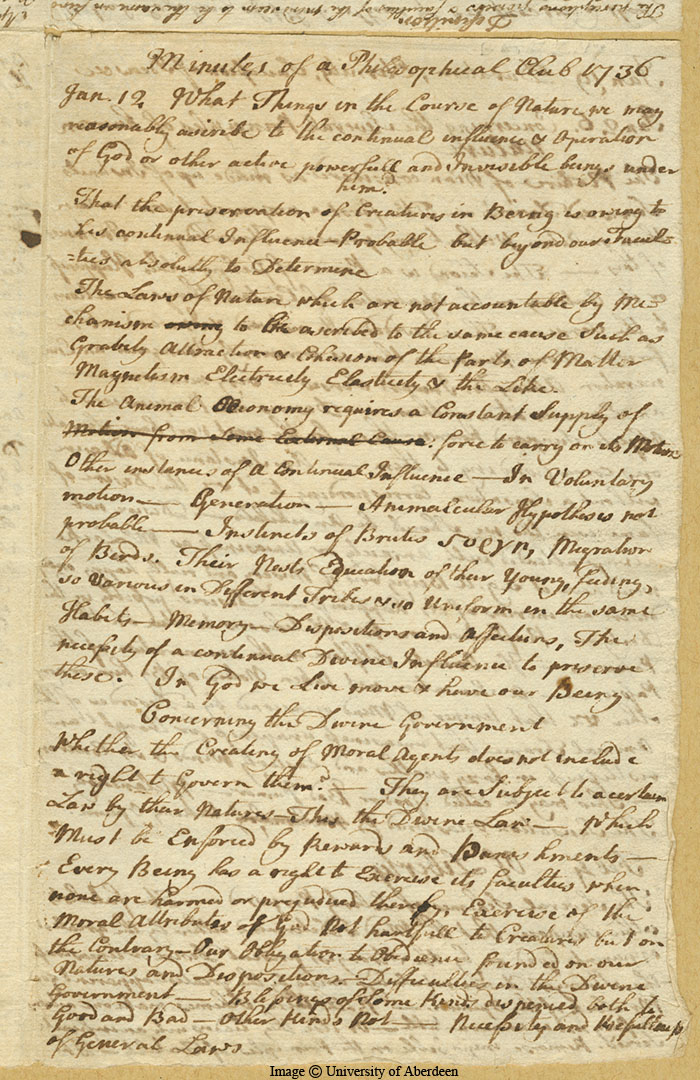 Definition
Minutes of a Philosophical Club 1736
Jan. 12. What Things in the Course of Nature we may
reasonably ascribe to the continual influence & Operation
of God or other active powerfull and Invisible beings under
him?
That the preservation of Creatures in Being is owing to
his continual Influence – Probable but beyond our Facul=
=ties absolutly to Determine
The Laws of Nature which are not accountable by Me=
chanism owing to be ascribed to the same cause Such as
Gravity Attraction & Cohesion of the Parts of Matter
Magnetism Electricity Elasticity & the Like.
The Animal Oeconomy requires a Constant Supply of
Motion from some External Cause. force to carry on its Motion
Other instances of a Continual Influence – In Voluntary
motion – Generation – Animalcular Hypothesis not
probable – Instincts of Brutes Migration
of Birds. Their Nests Education of their Young, feeding,
so various in Different Tribes & so Uniform in the same
Habits – Memory – Dispositions and Affections, The
necessity of a continual Divine Influence to preserve
these. In God we Live move & have our Being
Concerning the Divine Government
Whether the Creating of Moral Agents does not include
a right to Govern them? – They are Subject to a certain
Law by their Natures – This the Divine Law – Which
Must be Enforced by Rewards and Punishments –
Every Being has a right to Exercise its faculties when
none are harmed or prejudiced thereby, Exercise of the
Moral Attributes of God Not hurtfull to Creatures but on
the Contrary – Our Obligation to Obedience founded on our
Natures and Dispositions. Difficulties in the Divine
Government – Blessings of some Kinds dispensed both to
Good and Bad – Other Kinds Not – Necessity and Usefullness
of General Laws
Image © University of Aberdeen